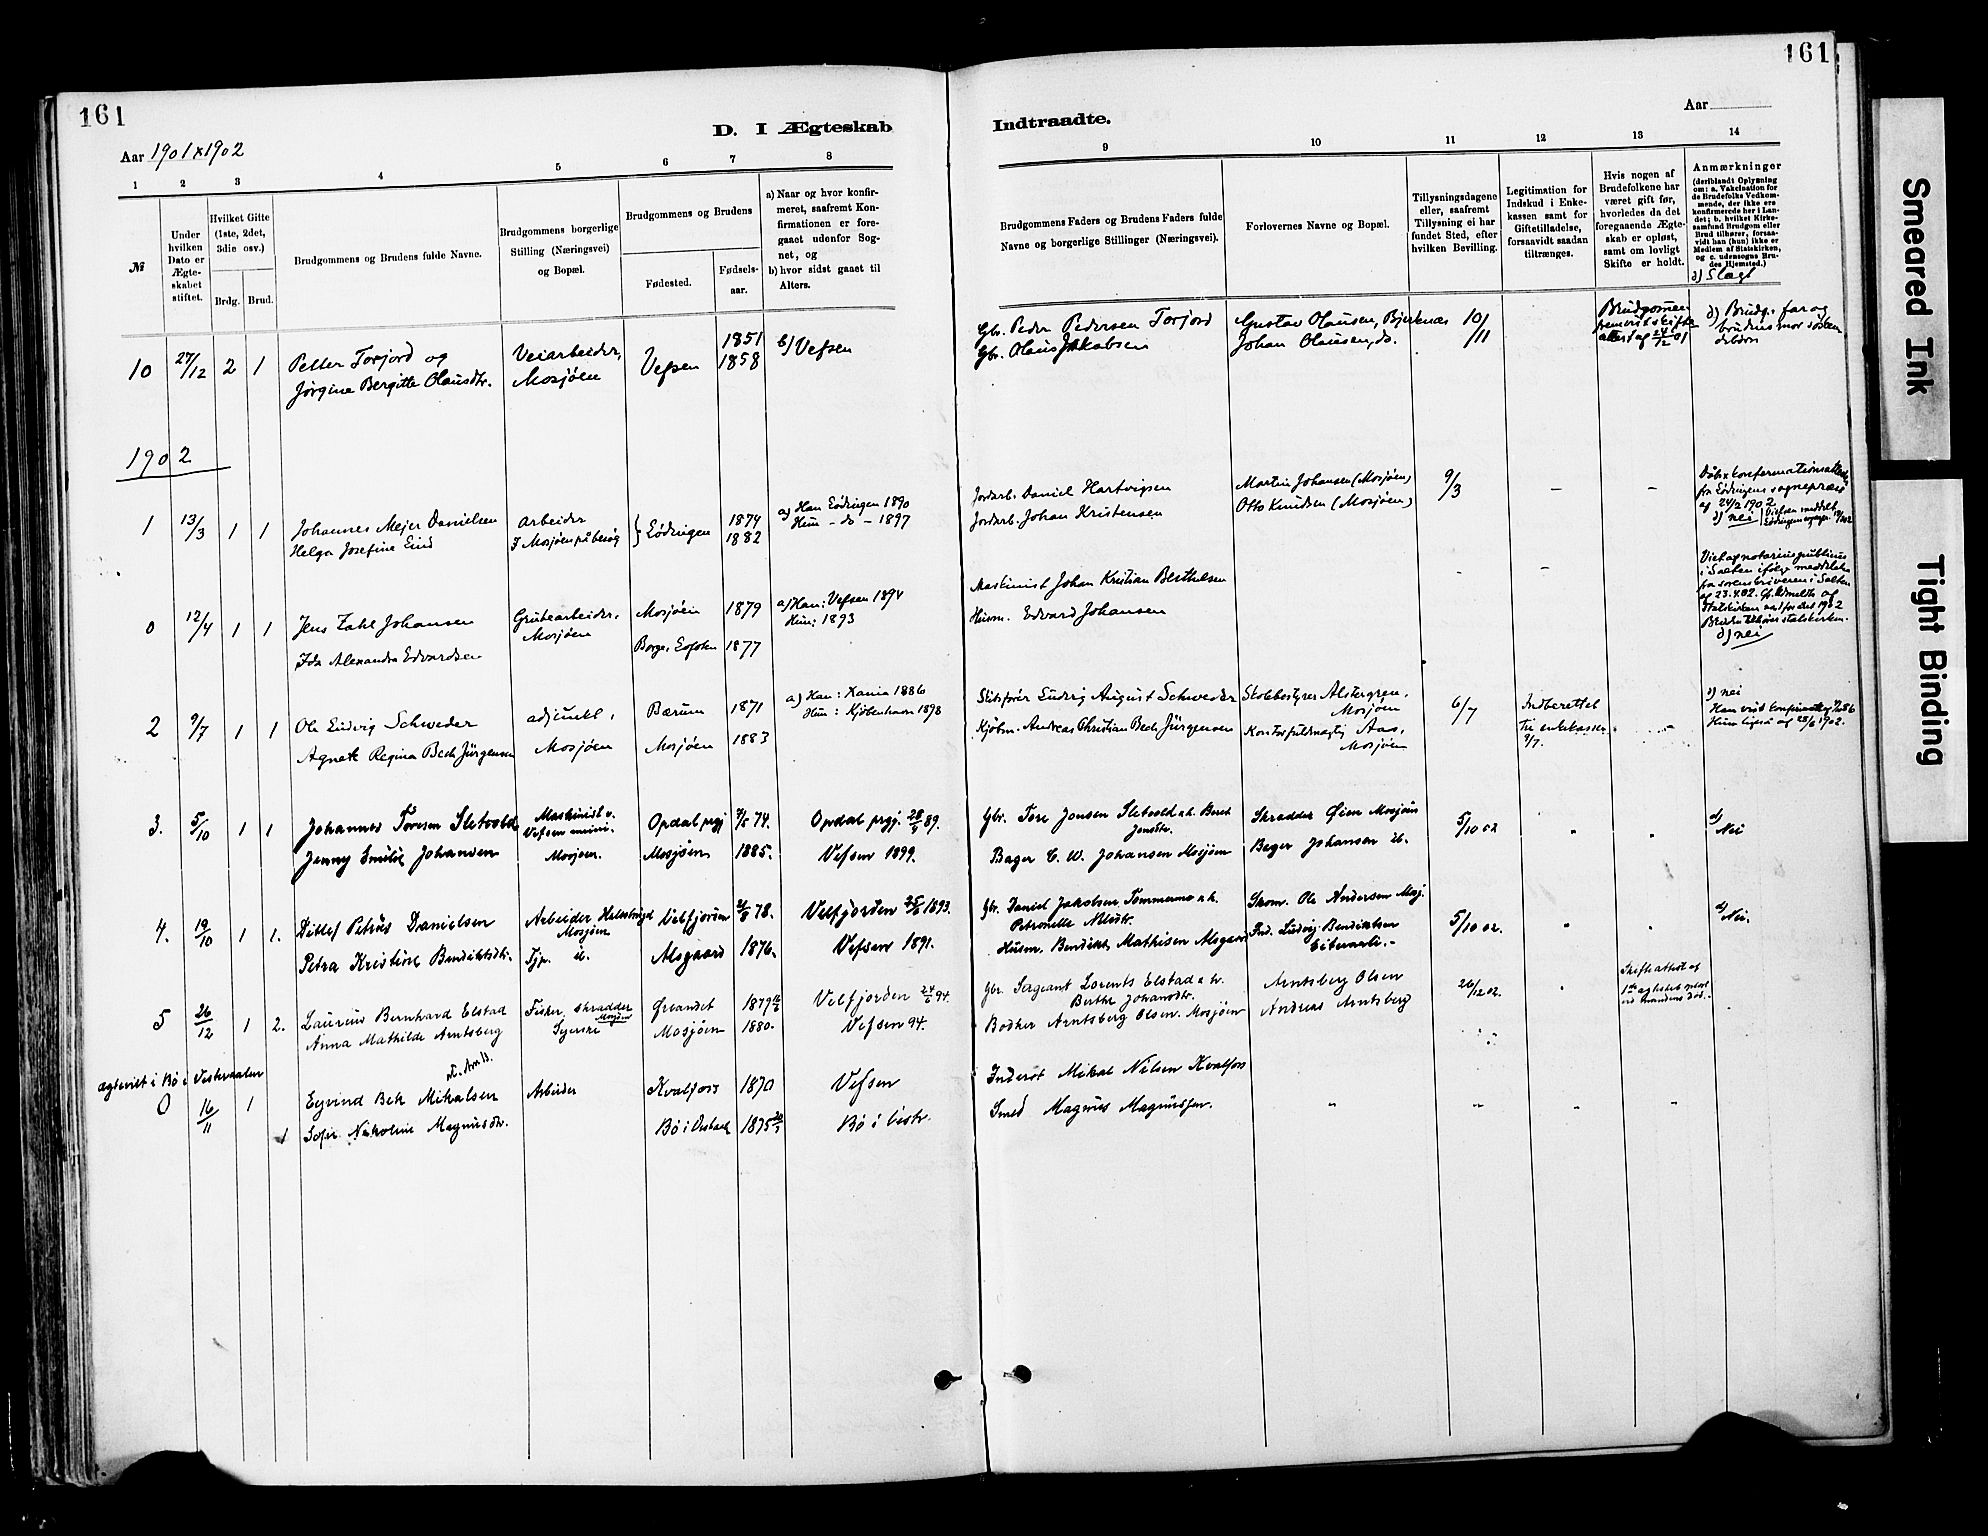 161
161
Aar 1901 x 1902
D. I Ægteskab
Indtraadte.
Aar
1 2 3 4 5 6 7 8
9 10 11 12 13 14
№
Under hvilken Dato er Ægteskabet stiftet.
Hvilket Gifte (1ste, 2det, 3die osv.)
Brdg. Brud.
Brudgommens og Brudens fulde Navne.
Brudgommens borgerlige Stilling (Næringsvei) og Bopæl.
Brudgommens og Brudens
Fødested.
Fødselsaar.
a) Naar og hvor konfirmeret, saafremt Konfirmationen er foregaaet udenfor Sognet, og
b) hvor sidst gaaet til Alters.
Brudgommens Faders og Brudens Faders fulde Navne og borgerlige Stillinger (Næringsvei).
Forlovernes Navne og Bopæl.
Tillysningsdagene eller, saafremt Tillysning ei har fundet Sted, efter hvilken Bevilling.
Legitimation for Indskud i Enkekassen samt for Giftetilladelse, forsaavidt saadan tiltrænges.
Hvis nogen af Brudefolkene har været gift før, hvorledes da det foregaaende Ægteskab er opløst, samt om lovligt Skifte er holdt.
Anmærkninger
(deriblandt Oplysning om: a. Vakcination for de Brudefolks Vedkommende, der ikke ere konfirmerede her i Landet; b. hvilket Kirkesamfund Brudgom eller Brud tilhører, forsaavidt han (hun) ikke er Medlem af Statskirken, og c. udensogns Brudes Hjemsted.)
d) Slægt
10 27/12 2 1 Petter Torjord og
Jørgine Bergitte Olausdtr.
Veiarbeider,
Mosjøen
Vefsen
1851
1858
b) Vefsen
Gbr. Peder Pedersen Torjord
Gbr. Olaus Jakobsen
Gustav Olausen, Bjerknes
Johan Olausen, do.
10/11
Brudgommen
attest af 24/12 01
d) Brudg. far og
brudens mor søsken
debørn
1902
1 13/3 1 1 Johannes Mejer Danielsen
Helga Josefine Eind
Arbeider
I Mosjøen på besøg
Lødingen
1874
1882
a) Han Lødingen 1890
Hun - do - 1897
Jordarb. Daniel Hartvigsen
Jordarb. Johan Kristensen
Martin Johansen (Mosjøen)
Otto Knudsen (Mosjøen)
9/3
-
-
fra Lødingens sognepræst
af 24/2 1902
d) nei
0 12/4 1 1 Jens Zahl Johansen
Ida Alexandra Edvardsen
Grubearbeider,
Mosjøen
Mosjøen 1879
Borge, Lofoten 1877
a) Han: Vefsen 1894
Hun: 1893
Maskinist Johan Kristian Berthelsen
Husm. Edvard Johansen
-
-
Viet af notarius publicus
i Salten ifølge meddelelse
fra sorenskriveren i Salten
af 23.4.02.
d) nei
2 9/7 1 1 Ole Ludvig Schweder
Agnete Regina Bech Jürgensen
adjunkt,
Mosjøen
Bærum 1871
Mosjøen 1883
a) Han: Xania 1886
Hun: Kjøbenhavn 1898
Skibsfører Ludvig August Schweder
Kjøbm. Andreas Christian Bech Jürgensen
Skolebestyrer Alstergren,
Mosjøen
Kontorfuldmægtig Aas,
Mosjøen
6/7
Indberettet
til enkekassen
9/7.
d) nei
3. 5/10 1 1 Johannes Toresen Sletvold
Jenny Emilie Johansen
Maskinist v.
Mosjøen.
Opdal prgj 74.
Mosjøen 1885.
Opdal prgj. 89.
Vefsen 1899.
Gbr. Tore Jonsen Sletvold o.h. Beret
Jonsdtr.
Bager C. W. Johansen Mosjøen
Skrædder Øien Mosjøen
Bager Johansen ib.
5/10 02
"
"
d)
Nei
4. 19/10 1 1. Ditlef Petrus Danielsen
Petra Kristine Bendiktsdtr.
Arbeider
Mosjøen
Tjp. ib.
Velfjorden 78.
Alsgaard 1876.
Velfjorden 1893.
Vefsen 1891.
Gbr. Daniel Jakobsen Tommermo o.h.
Petronelle Nilsdtr.
Husm. Bendikt Mathisen Alsgaard
Skom. Ole Andersen Mosj.
Ind. Ludvig Bendiktsen
5/10 02.
"
"
d)
Nei.
5 26/12 1 2. Laurens Bernhard Elstad
Anna Mathilde Arntsberg
Fisker, skrædder
Mosjøen
Syerske
1879
Mosjøen 1880.
Velfjorden 24/6 94.
Vefsen 94.
Gbr. Sergeant Lorents Elstad o.h.
Berthe Johansdtr.
Bødker Arntsberg Olsen. Mosjøen
Arntsberg Olsen
Andreas Arntsberg
26/12 02.
"
Skifteattest af
ved mandens død.
ægteviet i Bø i Vesteraalen
0 16/11 1 1 Eyvind Bek Mikalsen
Sofie Nikoline Magnusdtr.
Arbeider
Kvalfors 1870
Bø i Vesteraal 1875
Vefsen
Bø i Vestr.
Inderst Mikal Nilsen Kvalfors
Smed Magnus Magnussen.
"
"
"
"
Smeared Ink
Tight Binding